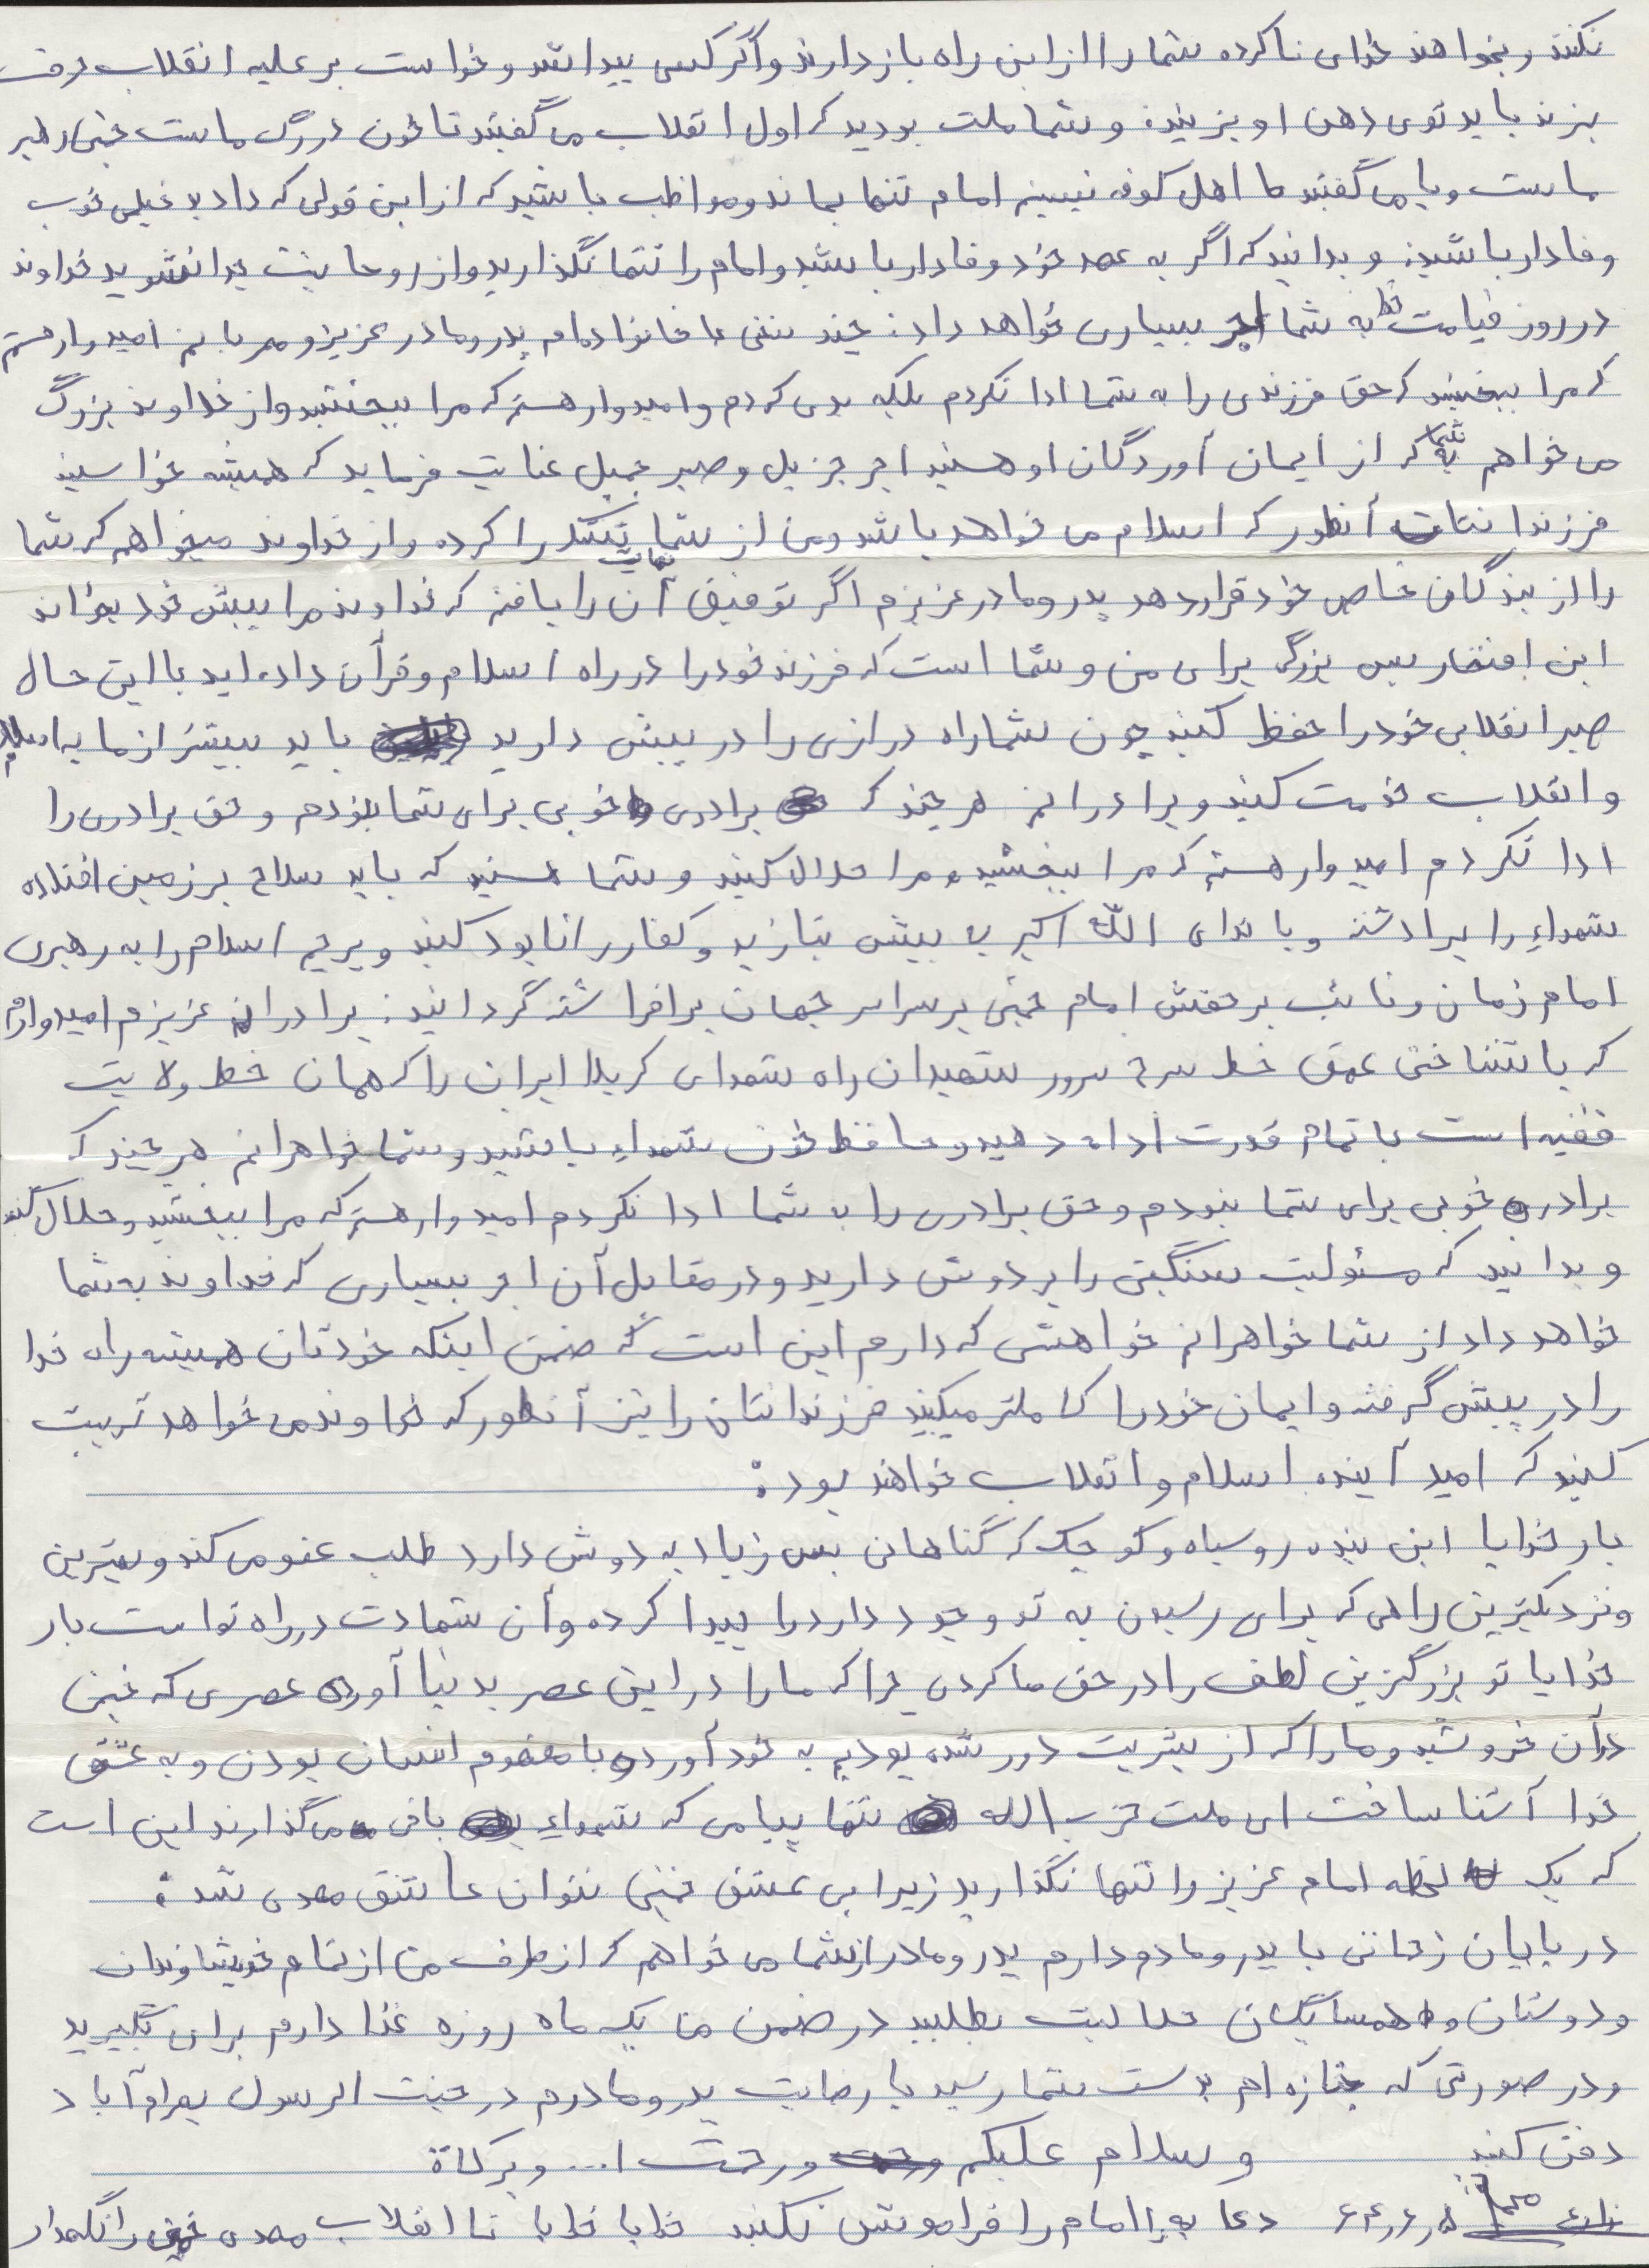 نکنند و بخواهند خدای ناکرده شما را از این راه باز دارند و اگر کسی پیدا شد و خواست بر علیه انقلاب حرف
بزند باید توی دهن او بزنید. و شما ملت بودید که اول انقلاب می گفتید تا خون در رگ ماست خمینی رهبر
ماست و یا می گفتید ما اهل کوفه نیستیم امام تنها بماند و مواظب باشید که از این قولی که دادید خیلی خوب
وفادار باشید. و بدانید که اگر به عهد خود وفادار باشید و امام را تنها نگذارید و از روحانیت جدا نشوید خداوند
در روز قیامت به شما اجر بسیاری خواهد داد. چند سخنی با خانواده ام پدر و مادر عزیز و مهربانم امیدوار هستم
که مرا ببخشید که حق فرزندی را به شما ادا نکردم بلکه بدی کردم و امیدوار هستم که مرا ببخشید و از خداوند بزرگ
می خواهم به شما که از ایمان آوردگان او هستید اجر جزیل و صبر جمیل عنایت فرماید که همیشه خواستید
فرزندانتان آنطور که اسلام می خواهد باشد و من از شما نهایت تشکر را کرده و از خداوند میخواهم که شما
را از بندگان خاص خود قرار دهد پدر و مادر عزیزم اگر توفیق آن را یافتم که خداوند مرا پیش خود بخواند
این افتخار بس بزرگ برای من و شما است که فرزند خود را در راه اسلام و قرآن داده اید با این حال
صبر انقلابی خود را حفظ کنید چون شما راه درازی را در پیش دارید باید بیشتر از ما به اسلام
و انقلاب خدمت کنید و برادرانم هر چند که برادری خوبی برای شما نبودم و حق برادری را
ادا نکردم امیدوار هستم که مرا ببخشید و مرا حلال کنید و شما هستید که باید سلاح بر زمین افتاده
شهداء را برداشته و با ندای الله اکبر به پیش بتازید و کفار را نابود کنید و پرچم اسلام را به رهبری
امام زمان و نائب برحقش امام خمینی بر سراسر جهان برافراشته گردانید. برادران عزیزم امیدوارم
که با شناختی عمیق خط سرخ سرور شهیدان راه شهدای کربلا ایران را که همان خط ولایت
فقیه است با تمام قدرت ادامه دهید و حافظ خون شهداء باشید و شما خواهرانم هر چند که
برادر خوبی برای شما نبودم و حق برادری را به شما ادا نکردم امیدوار هستم که مرا ببخشید و حلال کنید
و بدانید که مسئولیت سنگینی را بر دوش دارید و در مقابل آن اجر بسیاری که خداوند به شما
خواهد داد از شما خواهرانم خواهشی که دارم این است که ضمن اینکه خودتان همیشه راه خدا
را در پیش گرفته و ایمان خود را کاملتر میکنید فرزندانتان را نیز آنطور که خداوند می خواهد تربیت
کنید که امید آینده اسلام و انقلاب خواهند بود.
بار خدایا این بنده رو سیاه و کوچک که گناهانی بس زیاد به دوش دارد طلب عفو می کند و بهترین
و نزدیکترین راهی که برای رسیدن به تو وجود دارد را پیدا کرده و آن شهادت در راه تو است بار
خدایا تو بزرگترین لطف را در حق ما کردی چرا که ما را در این عصر به دنیا آوردی عصری که خمینی
در آن خروشید و ما را که از بشریت دور شده بودیم به خود آورد و با مفهوم انسان بودن و به عشق
خدا آشنا ساخت ای ملت حزب الله تنها پیامی که شهداء باقی می گذارند این است
که یک لحظه امام عزیز را تنها نگذارید زیرا بی عشق خمینی نتوان عاشق مهدی شد.
در پایان زحمتی با پدر و مادرم دارم پدر و مادر از شما می خواهم که از طرف من از تمام خویشاوندان
و دوستان و همسایگان حلالیت بطلبید در ضمن من یک ماه روزه قضا دارم برای بگیرید
و در صورتی که جنازه ام بدست شما رسید با رضایت پدر و مادرم در جنت الرسول بهرام آباد
دفن کنید و سلام علیکم و رحمت ا... و برکاة
۶۴٫۶٫۵ دعا به امام را فراموش نکنید خدایا خدایا تا انقلاب مهدی خمینی را نگهدار